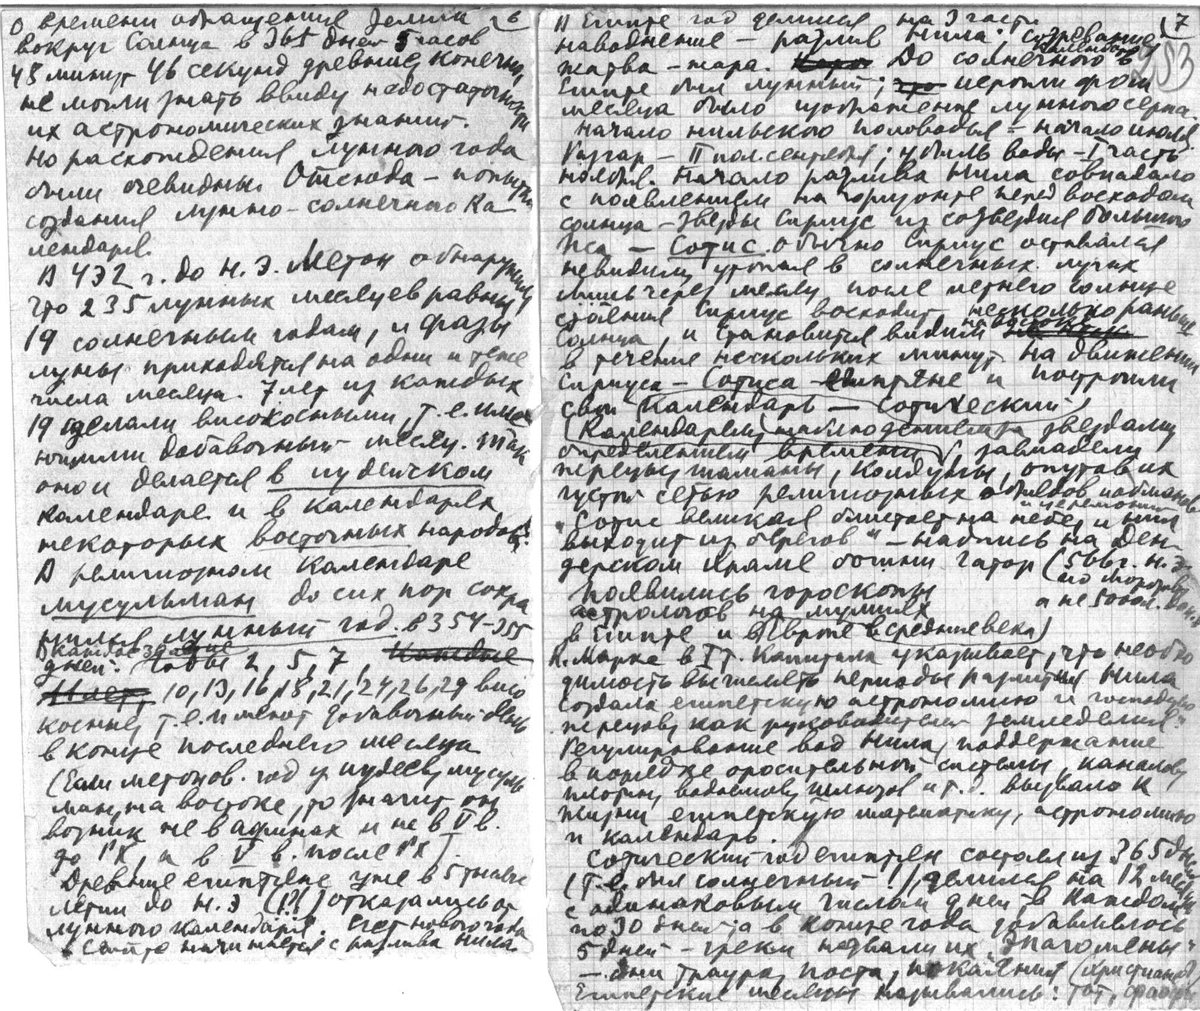 О времени обращения Земли
вокруг Солнца в 365 дней 5 часов
48 минут 46 секунд древние, конечно,
не могли знать ввиду недостаточности
их астрономических знаний.
Но расхождения лунного года
были очевидны. Отсюда – попытки
создания лунно-солнечного ка-
лендаря.
В 432 г. до н.э. Метон обнаружил,
что 235 лунных месяцев равны
19 солнечным годам, и фазы
луны приходятся на одни и те же
числа месяца. 7 лет из каждых
19 сделали високосными, т.е. име
ющими добавочный месяц. Так
оно и делается в иудейском
календаре и в календарях
некоторых восточных народов.
В религиозном календаре
мусульман до сих пор сохра
нился лунный год. в 354-355
дней. Годы 2, 5, 7, каждые
10, 13, 16, 18, 21, 24, 26, 29 висо
косные, т.е. имеют добавочный день
в конце последнего месяца
(Если метонов. год у иудеев, мусуль
ман, на востоке, то значит он
возник не в афинах и не в V в.
до РХ, а в V в. после РХ)
Древние египтяне уже в 5 тысяче
летии до н.э (!?!) отказались от
лунного календаря. Счет нового года
в Египте начинается с разлива Нила
6
7
253
В Египте год делился на 3 части
наводнение – разлив Нила; созревание,
жатва – жара. До солнечного календаря в
Египте был лунный; иероглифом
месяца было изображение лунного серпа.
Начало нильского половодья – начало июля,
Разгар – II пол. сентября; убыль воды – I часть
ноября. Начало разлива Нила совпадало
с появлением на горизонте перед восходом
солнца – звезды Сириус из созвездия большого
Пса – Сотис. обычно Сириус оставался
невидим, утопая в солнечных лучах
Лишь через месяц после летнего солнце
стояния Сириус восходит несколько раньше
солнца, и становится видим на востоке
в течение нескольких минут. На движении
Сириуса – Сотиса египтяне и построили
свой календарь – сотический
(Календарем, наблюдениями звездам,
определением времени, завладели
жрецы, шаманы, колдуны, опутав их
густой сетью религиозных обрядов и обманов
и церемоний
"Сотис великая блистает на небе, и Нил
выходит из берегов" – надпись на Ден-
дерском храме богини Гатор (568г. н.э.
по Морозову,
Появились гороскопы
астрологов на мумиях
в Египте и в Европе в средние века)
К. Маркс в I т. Капитала указывает, что "необхо
димость вычислять периоды разлития Нила
создала египетскую астрономию и господство
жрецов, как руководителей земледелия"
Регулирование вод Нила, поддержание
в порядке оросительной системы, каналов,
плотин, водоемов, шлюзов и т.д. вызвало к
жизни египетскую математику, астрономию
и календарь.
Сотический год египтян состоял из 365 дней
(т.е. был солнечный!), делился на 12 месяцев
с одинаковым числом дней в каждом
по 30 дней, а в конце года добавилось
5 дней – греки назвали их эпагомены"
– дни траура, поста, покаяния
Египетские месяцы назывались: Тот, фаофи